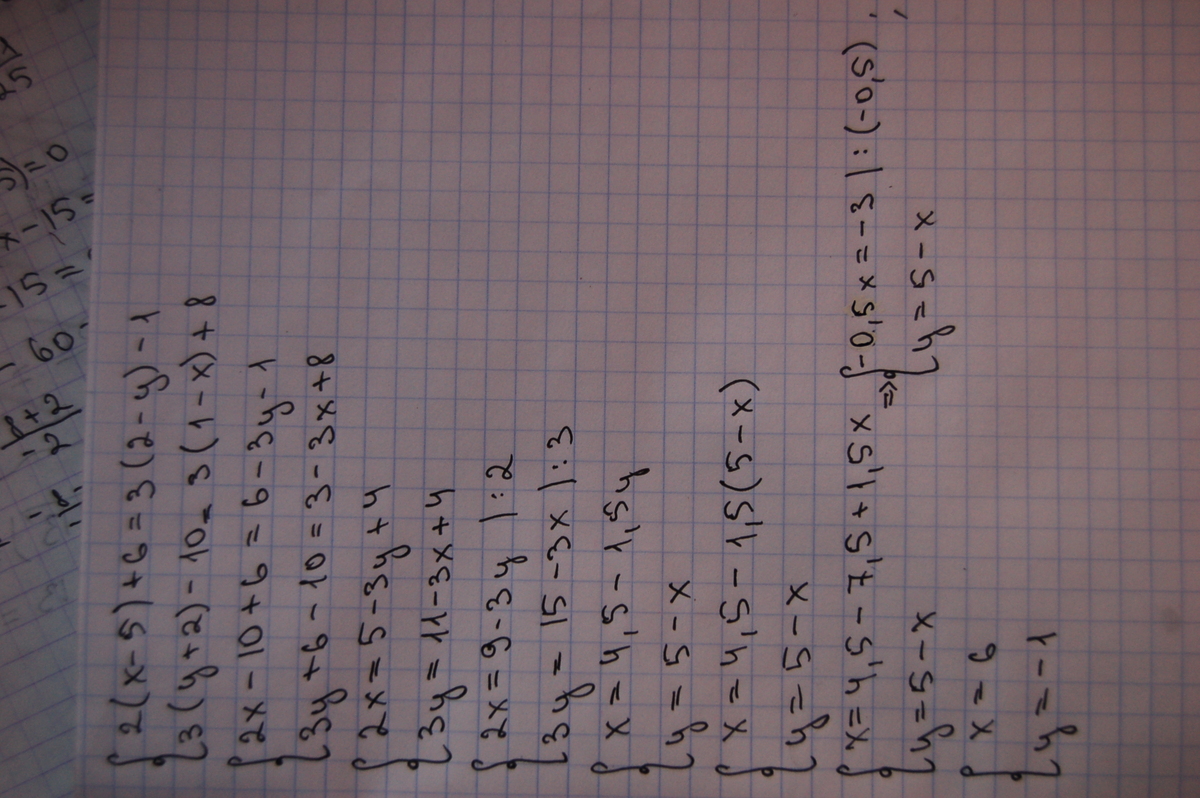 {2(x-5)+6=3(2-y)-1
{3(y+2)-10=3(1-x)+8
{2x-10+6=6-3y-1
{3y+6-10=3-3x+8
{2x=5-3y+4
{3y=11-3x+4
{2x=9-3y |:2
{3y=15-3x |:3
{x=4,5-1,5y
{y=5-x
{x=4,5-1,5(5-x)
{y=5-x
{x=4,5-7,5+1,5x => {-0,5x=-3 |:(-0,5);
{y=5-x {y=5-x
{x=6
{y=-1